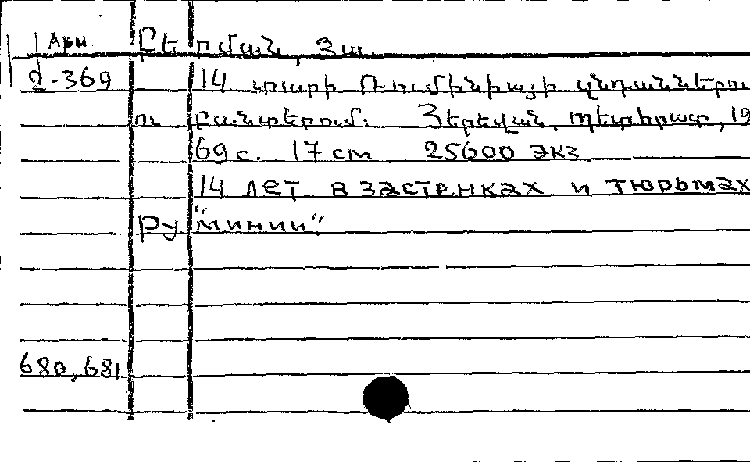 Арм
Բերման, Յա.
2-369
14 տարի Ռումինիայի զնդաններու
ու բանտերում: Յերեվան, Պետհրատ, 19
69 с. 17 cm 25600 экз
14 лет в застенках и тюрьмах
Ру"минии"
680, 681